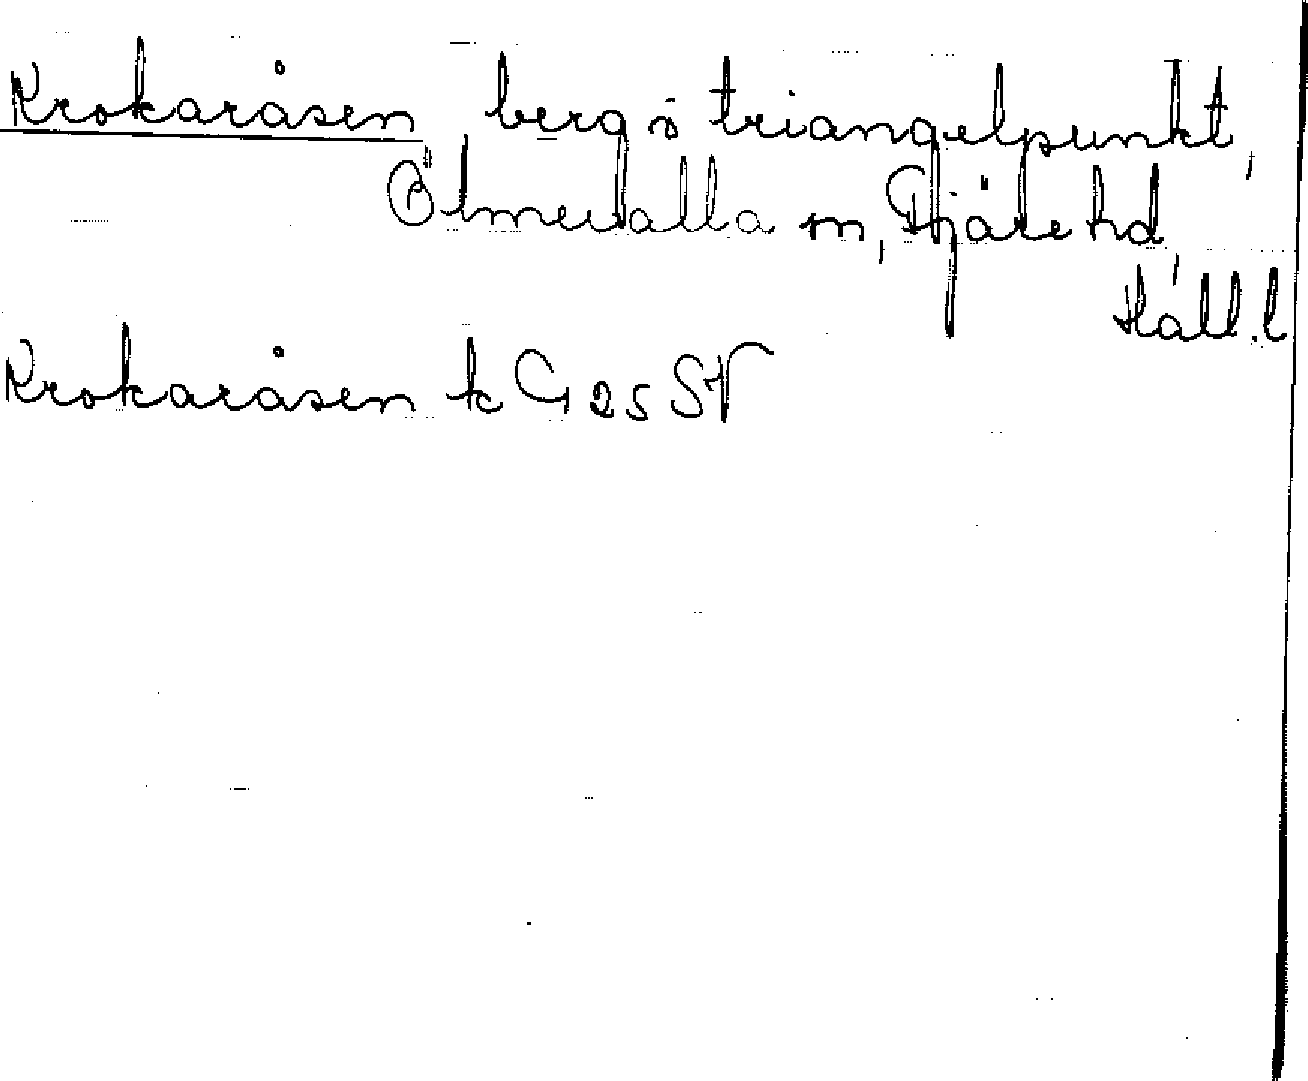 Krokaråsen, berg o triangelpunkt,
Ölmevalla sn, Fjäre hd,
Hall. l
Krokaråsen k G 25 SV